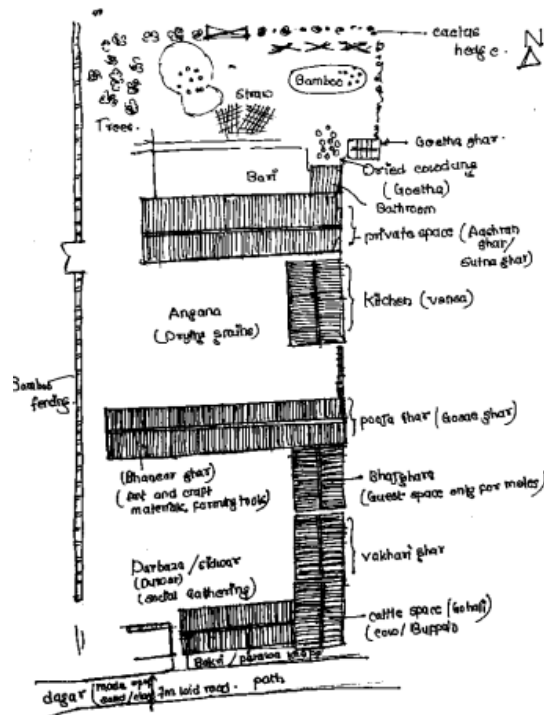 cactus
hedge.
N
Bamboo
Straw
Trees
Goetha ghar.
Dried cowdung
(Goetha)
Bari
Bathroom
private space (Aashran
ghar/
Sutna ghar)
Kitchen (vansa)
Angana
(Drying grains)
Bamboo
fencing
pooja ghar (Gosae ghar)
(Bhancar ghar)
(Art and craft
materials, farming tools)
Bhajghara
(Guest space only for males)
vakhari ghar
Darbaza/
(Duwar)
(social gathering)
cattle space (Gohali)
(cow/Buffalo
Bakri/
dagar (made
sand/clay
7m laid road. path